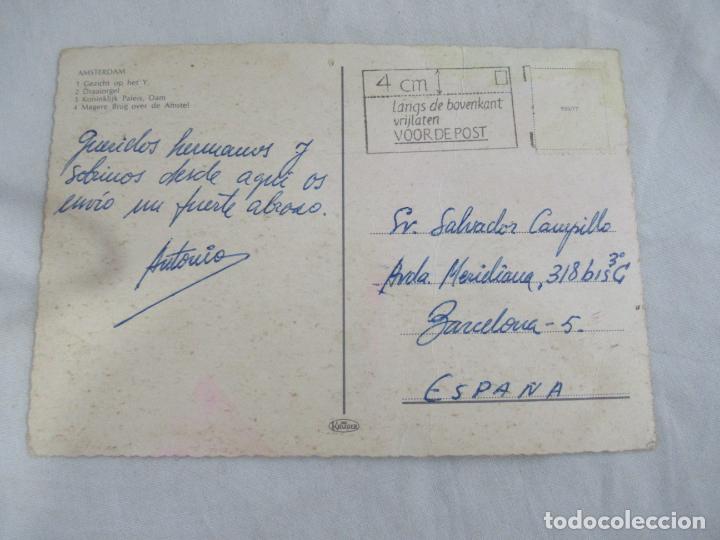 AMSTERDAM
1 Gezicht op het Y.
2 Draaiorgel
3 Koninklijk Paleis, Dam
4 Magere Brug over de Amstel
Queridos hermanos y
sobrinos desde aquí os
envío un fuerte abrazo.
Antonio
4 cm
langs de bovenkant
vrijlaten
VOOR DE POST
Sr. Salvador Campillo
Avda. Meridiana, 318 bis 3º C
Barcelona - 5.
ESPAÑA
KRÜGER
todocoleccion
todocoleccion.net